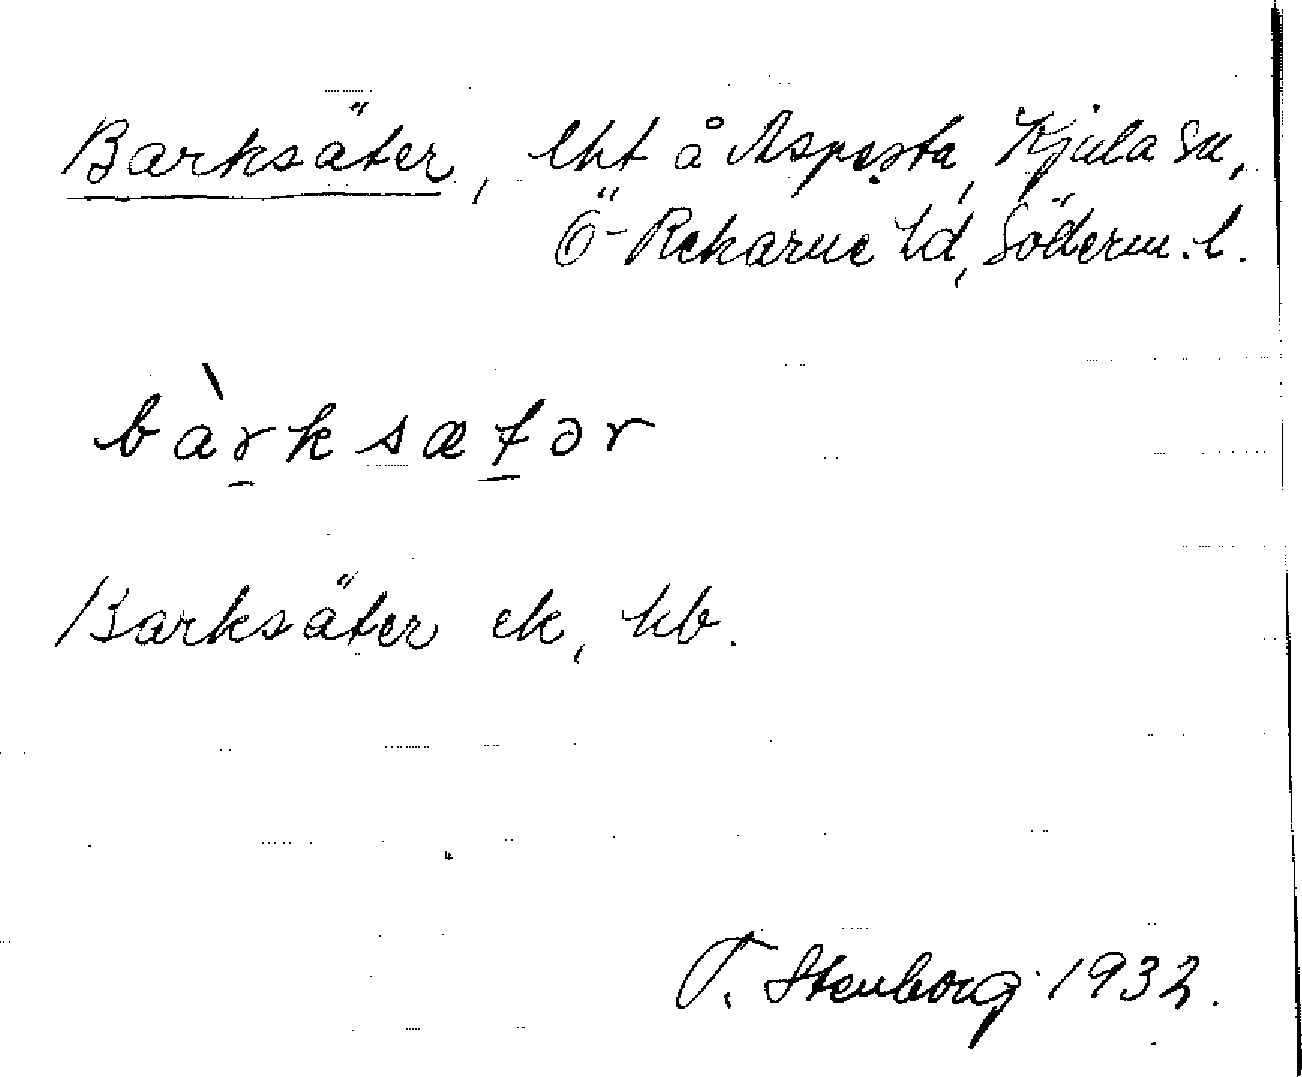 Barksäter, lht å Aspesta, Kjula sn,
Ö-Rekarne hd, Söderm. l.
bàrksætər
Barksäter ek, kb.
T. Stenborg 1932.